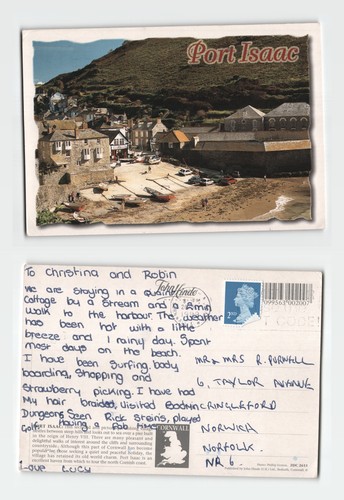 Port Isaac
To Christina and Robin
We are staying in a quaint
Cottage by a stream and a 2min
walk to the harbour. The weather
has been hot with a little
breeze and 1 rainy day. Spent
most days on the beach.
I have been Surfing, body
boarding, Shopping and
Strawberry picking. I have had
My hair Braided, visited Bodmin
Dungeons Seen Rick Stein's, played
Golf. Having a fab time
Love Lucy
John Hinde
2ND
099563 002007
MR & MRS R. PURNELL
6, TAYLOR AVENUE
CRINGLEFORD
NORWICH
NORFOLK.
NR 6
PORT ISAAC
CORNWALL